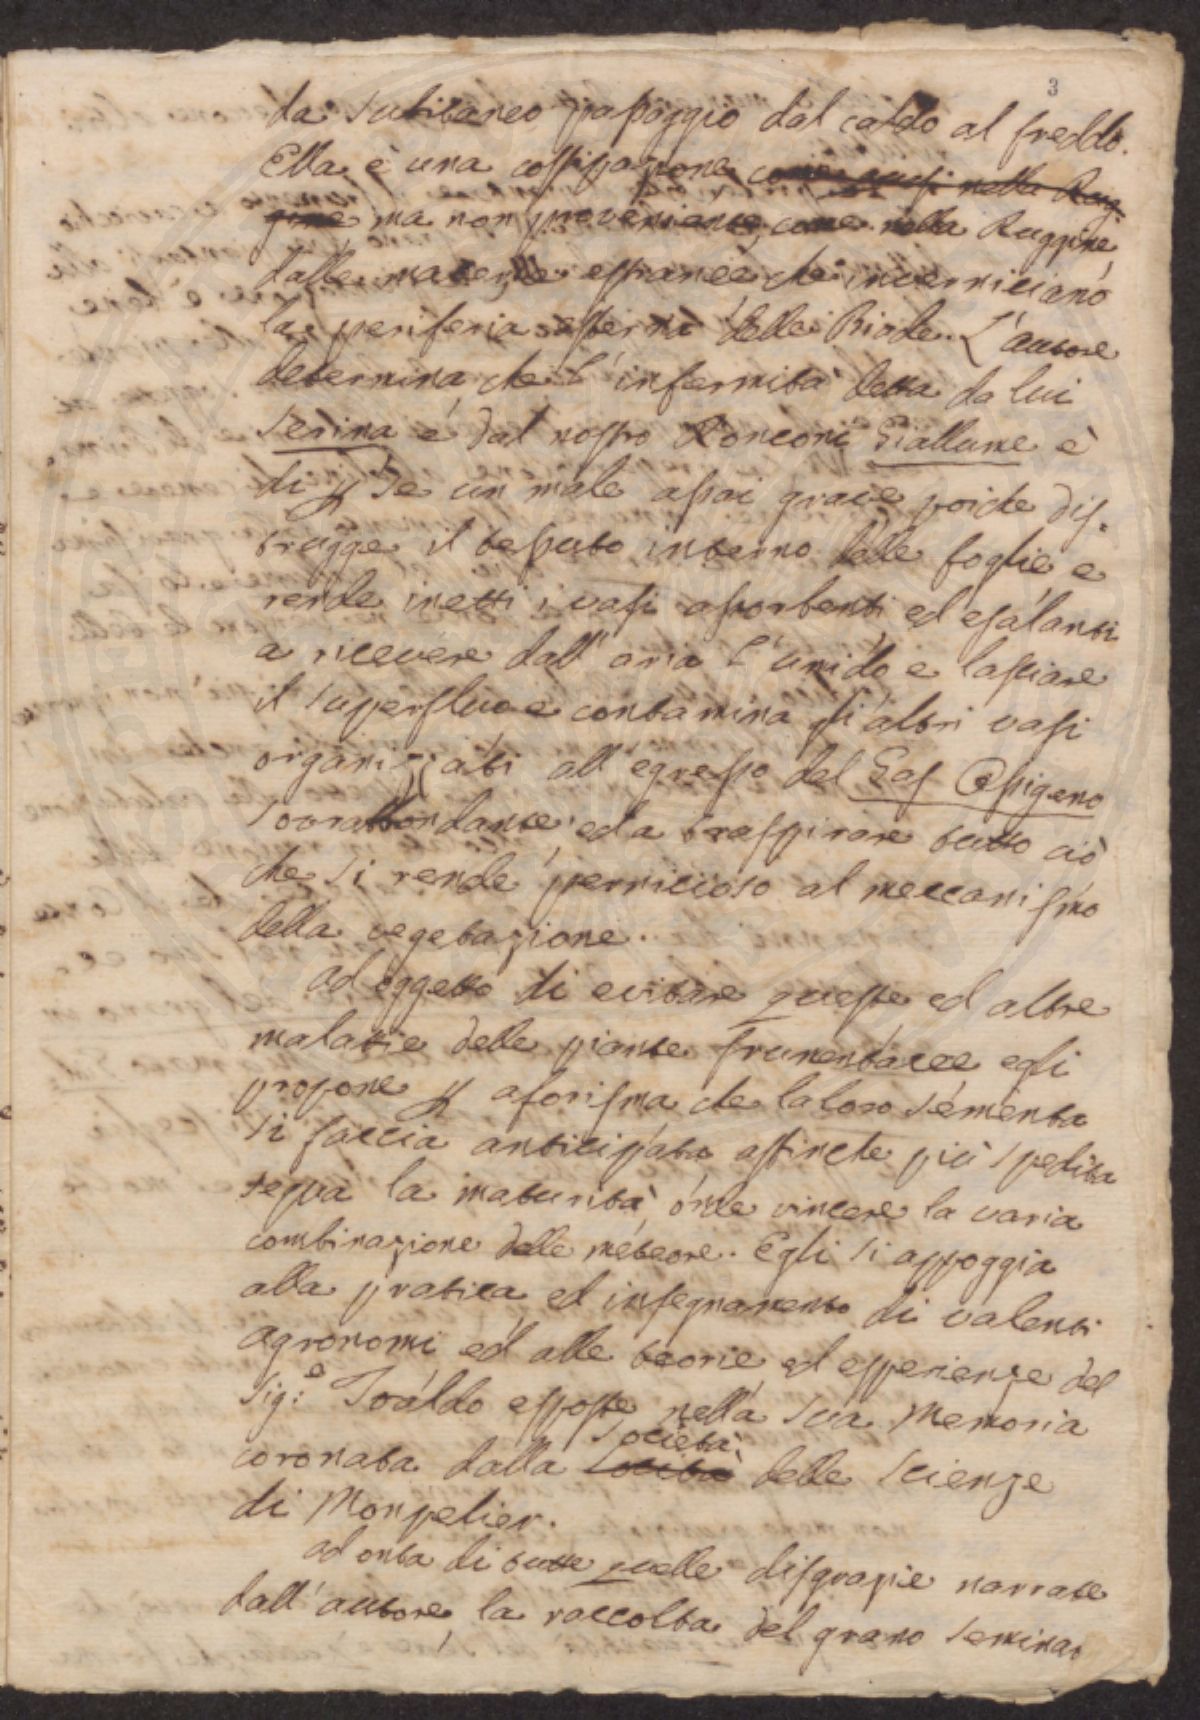 3
da subitaneo passaggio dal caldo al freddo.
Ella è una costipazione come quasi nella Rug-
gine ma non proveniente, come nella Ruggine
dalle materie estranee che inverniciano
la periferia esterna delle Biade. L'autore
determina che l'infermità detta da lui
Serina e dal nostro Ronconi Giallume è
di p se un male assai grave poiche dis-
trugge il tessuto interno delle foglie e
rende inetti i vasi assorbenti ed esalanti
a ricevere dall'aria l'umido e lasciare
il superfluo e contamina gli altri vasi
organizzati all'egresso del Gas Ossigeno
sovrabbondante, ed a traspirare tutto ciò
che si rende pernicioso al meccanismo
della vegetazione.
ad oggetto di evitare queste ed altre
malatie delle piante frumentacee egli
propone p aforisma che la loro sementa
si faccia anticipata affinche più spedita
segua la maturità onde vincere la varia
combinazione delle meteore. Egli si appoggia
alla pratica ed insegnamento di valenti
agronomi ed alle teorie ed esperienze del
Sig.e Toaldo esposte nella sua Memoria
coronata dalla Società delle Scienze
di Monpelier.
ad onta di tutte quelle disgrazie narrate
dall'autore, la raccolta del grano semina-